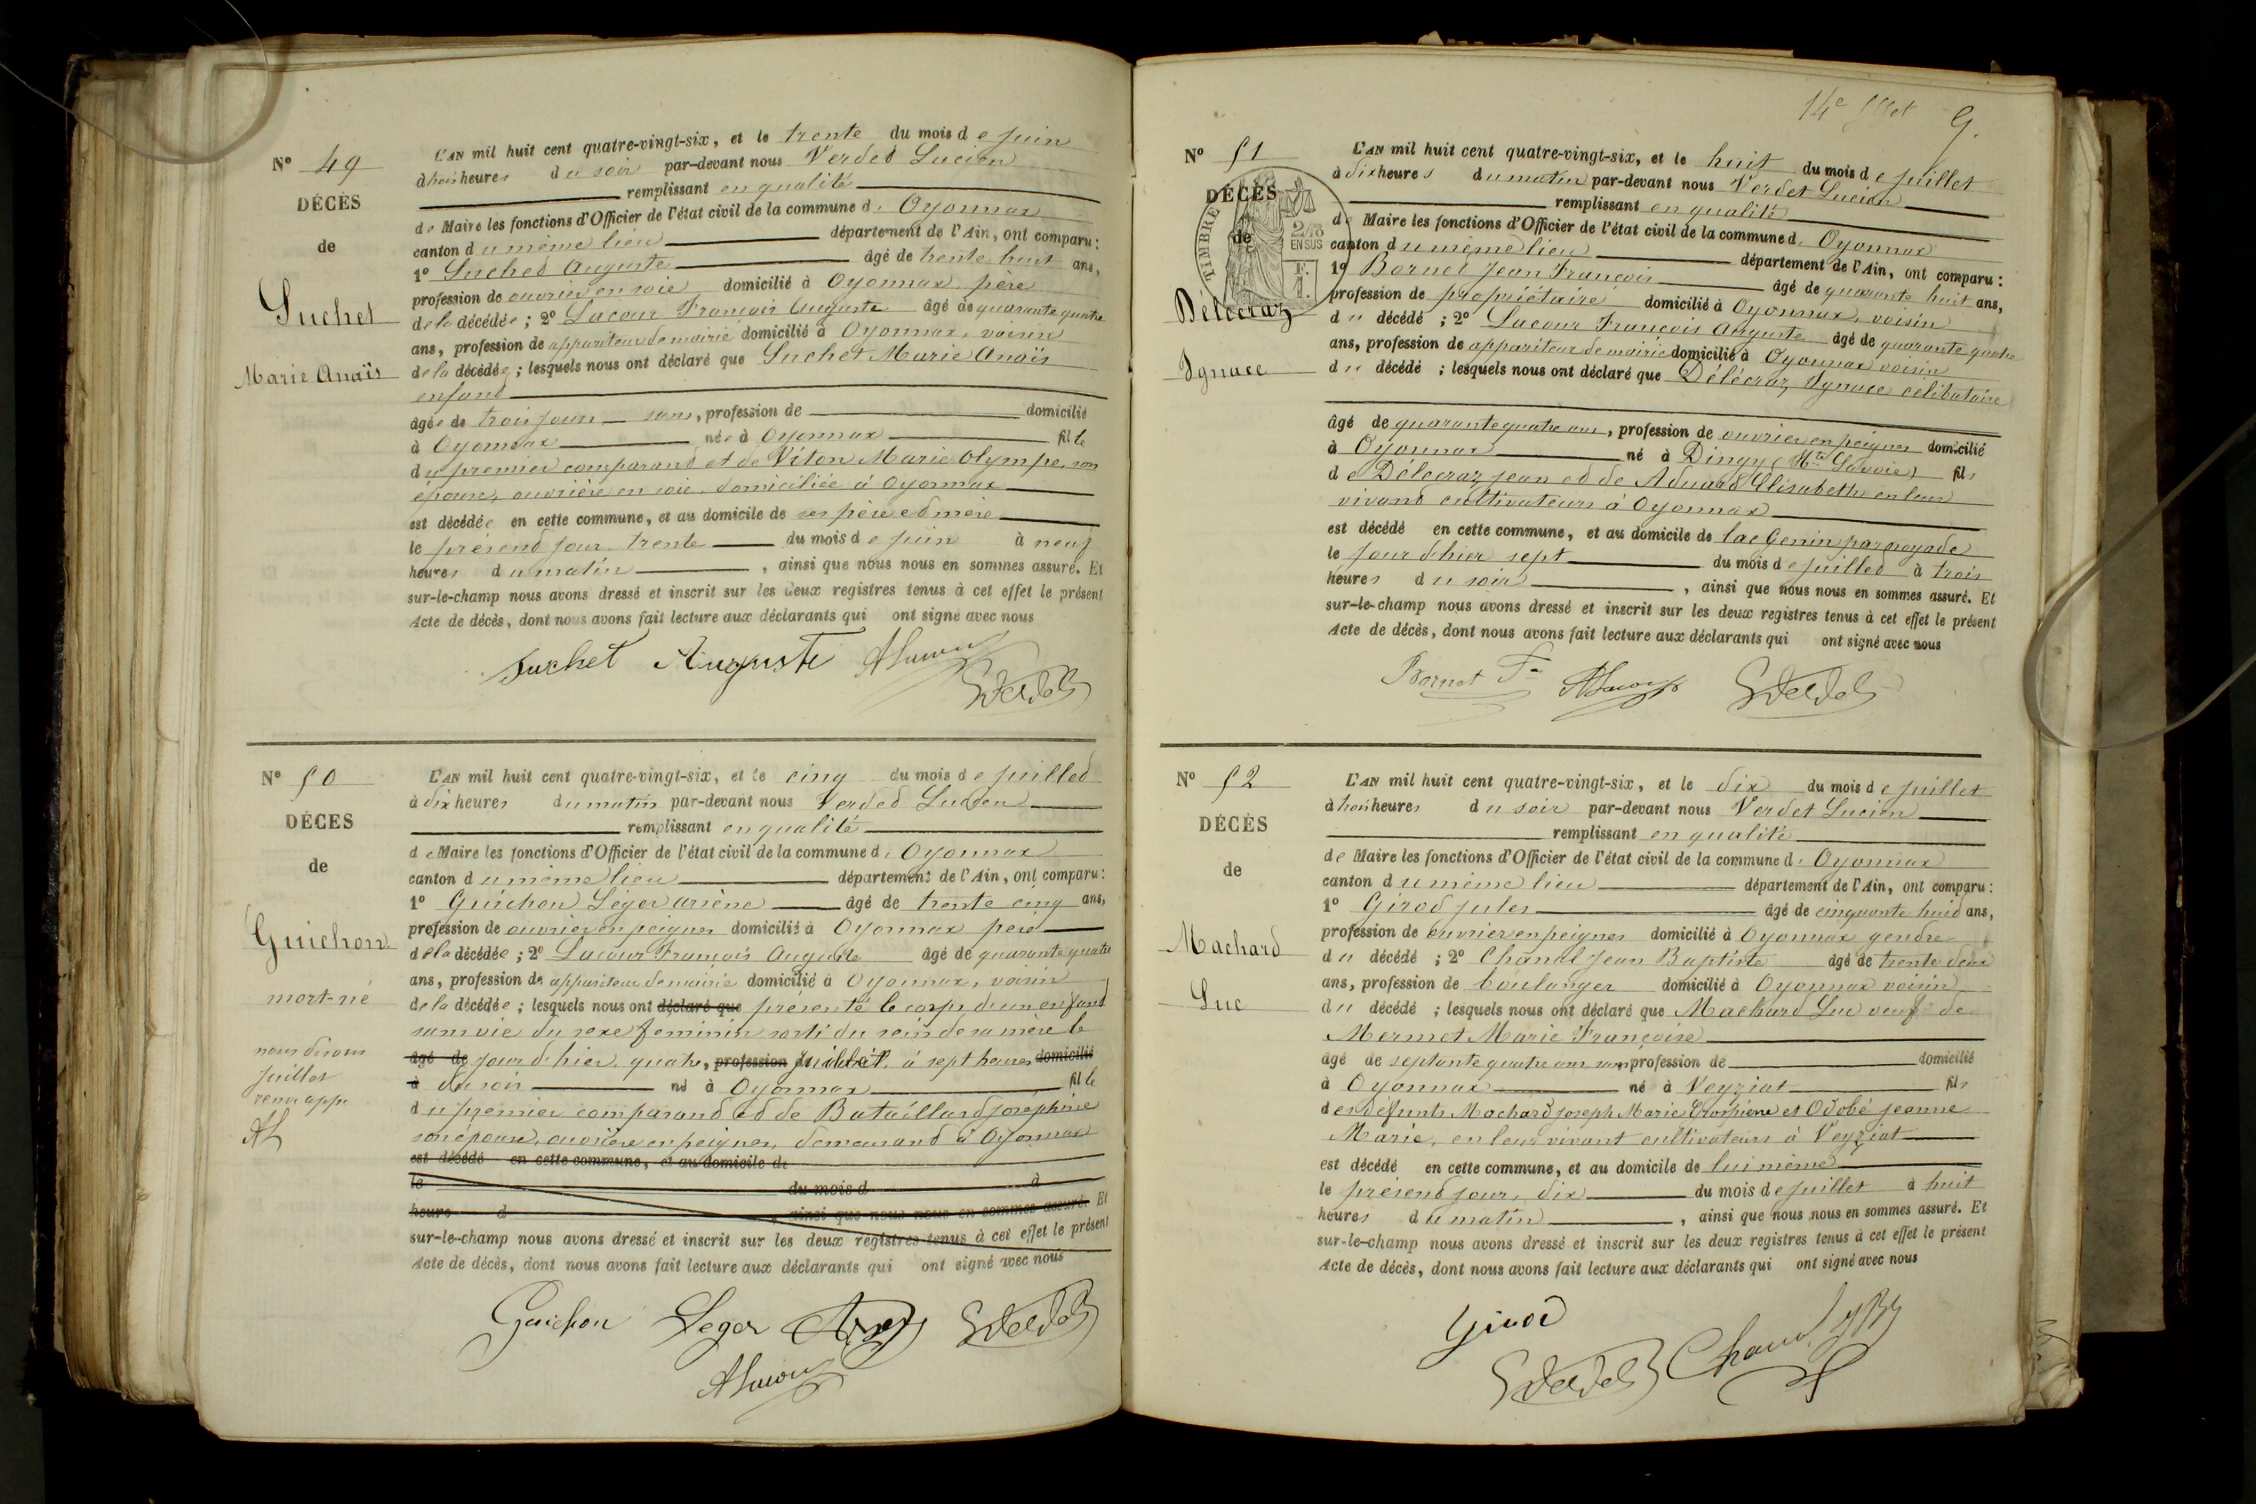 N° 49
DÉCÈS
de
Suchet
Marie Anaïs
L'AN mil huit cent quatre-vingt-six, et le trente du mois de juin
à trois heures du soir par-devant nous Verdet Lucien
remplissant en qualité
de Maire les fonctions d'Officier de l'état civil de la commune d' Oyonnax
canton du même lieu département de l'Ain, ont comparu :
1° Suchet Auguste âgé de trente huit ans,
profession de ouvrier en soie domicilié à Oyonnax, père
de la décédée ; 2° Lacour François Auguste âgé de quarante quatre
ans, profession de appariteur de mairie domicilié à Oyonnax, voisin
de la décédée ; lesquels nous ont déclaré que Suchet Marie Anaïs
enfant
âgée de trois jours sans, profession de domicilié
à Oyonnax née à Oyonnax fille
du premier comparant et de Viton Marie Olympe, son
épouse, ouvrière en soie, domiciliée à Oyonnax
est décédée en cette commune, et au domicile de ses père et mère
le présent jour, trente du mois de juin à neuf
heures du matin, ainsi que nous nous en sommes assuré. Et
sur-le-champ nous avons dressé et inscrit sur les deux registres tenus à cet effet le présent
Acte de décès, dont nous avons fait lecture aux déclarants qui ont signé avec nous
Suchet Auguste ALacour
Verdet
N° 50
DÉCES
de
Guichon
mort-né
nous disons
juillet
renv. app.
AL
L'AN mil huit cent quatre-vingt-six, et le cinq du mois de juillet
à dix heures du matin par-devant nous Verdet Lucien
remplissant en qualité
de Maire les fonctions d'Officier de l'état civil de la commune d' Oyonnax
canton du même lieu département de l'Ain, ont comparu :
1° Guichon Léger Arsène âgé de trente cinq ans,
profession de ouvrier en peignes domicilié à Oyonnax père
de la décédée ; 2° Lacour François Auguste âgé de quarante quatre
ans, profession de appariteur de mairie domicilié à Oyonnax, voisin
de la décédée ; lesquels nous ont déclaré que présenté le corps d'un enfant
sans vie du sexe feminin sorti du sein de sa mère le
âgé de jour d'hier, quatre, profession juillet, à sept heures domicilié
à du soir né à Oyonnax fille
du premier comparant et de Bataillard Joséphine
son épouse, ouvrière en peignes, demeurant à Oyonnax
est décédé en cette commune, et au domicile de
le du mois d à
heures d, ainsi que nous nous en sommes assuré. Et
sur-le-champ nous avons dressé et inscrit sur les deux registres tenus à cet effet le présent
Acte de décès, dont nous avons fait lecture aux déclarants qui ont signé avec nous
Guichon Leger Verdet
ALacour
14e
G.
N° 51
DÉCÈS
de
TIMBRE
2/10 EN SUS
Délécraz
Ignace
L'AN mil huit cent quatre-vingt-six, et le huit du mois de juillet
à dix heures du matin par-devant nous Verdet Lucien
remplissant en qualité
de Maire les fonctions d'Officier de l'état civil de la commune d' Oyonnax
canton du même lieu département de l'Ain, ont comparu :
1° Bornet Jean François âgé de quarante huit ans,
profession de propriétaire domicilié à Oyonnax, voisin
du décédé ; 2° Lacour François Auguste âgé de quarante quatre
ans, profession de appariteur de mairie domicilié à Oyonnax voisin
du décédé ; lesquels nous ont déclaré que Délécraz Ignace célibataire
âgé de quarante quatre ans, profession de ouvrier en peignes domicilié
à Oyonnax né à Dingy (Hte Savoie) fils
de Délecraz Jean et de Aduard Elisabeth en leur
vivant cultivateurs à Oyonnax
est décédé en cette commune, et au domicile de lac Genin par noyade
le jour d'hier sept du mois de juillet à trois
heures du soir, ainsi que nous nous en sommes assuré. Et
sur-le-champ nous avons dressé et inscrit sur les deux registres tenus à cet effet le présent
Acte de décès, dont nous avons fait lecture aux déclarants qui ont signé avec nous
Bornet Fs ALacour Verdet
N° 52
DÉCÈS
de
Machard
Luc
L'AN mil huit cent quatre-vingt-six, et le dix du mois de juillet
à trois heures du soir par-devant nous Verdet Lucien
remplissant en qualité
de Maire les fonctions d'Officier de l'état civil de la commune d' Oyonnax
canton du même lieu département de l'Ain, ont comparu :
1° Girod Jules âgé de cinquante huit ans,
profession de ouvrier en peignes domicilié à Oyonnax gendre
du décédé ; 2° Chanal Jean Baptiste âgé de trente deux
ans, profession de boulanger domicilié à Oyonnax voisin
du décédé ; lesquels nous ont déclaré que Machard Luc veuf de
Mermet Marie Françoise
âgé de septante quatre ans sans profession de domicilié
à Oyonnax né à Veyziat fils
des défunts Machard Joseph Marie et Odobé Jeanne
Marie, en leur vivant cultivateurs à Veyziat
est décédé en cette commune, et au domicile de lui même
le présent jour, dix du mois de juillet à huit
heures du matin, ainsi que nous nous en sommes assuré. Et
sur-le-champ nous avons dressé et inscrit sur les deux registres tenus à cet effet le présent
Acte de décès, dont nous avons fait lecture aux déclarants qui ont signé avec nous
Girod
Verdet Chanal